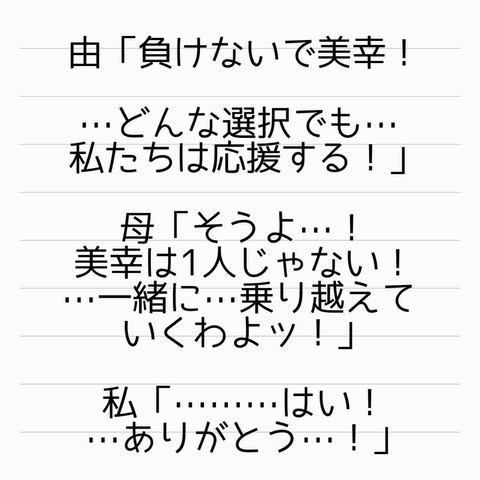 由「負けないで美幸！
…どんな選択でも…
私たちは応援する！」
母「そうよ…！
美幸は1人じゃない！
…一緒に…乗り越えて
いくわよッ！」
私「………はい！
…ありがとう…！」